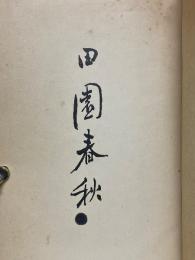 田園春秋